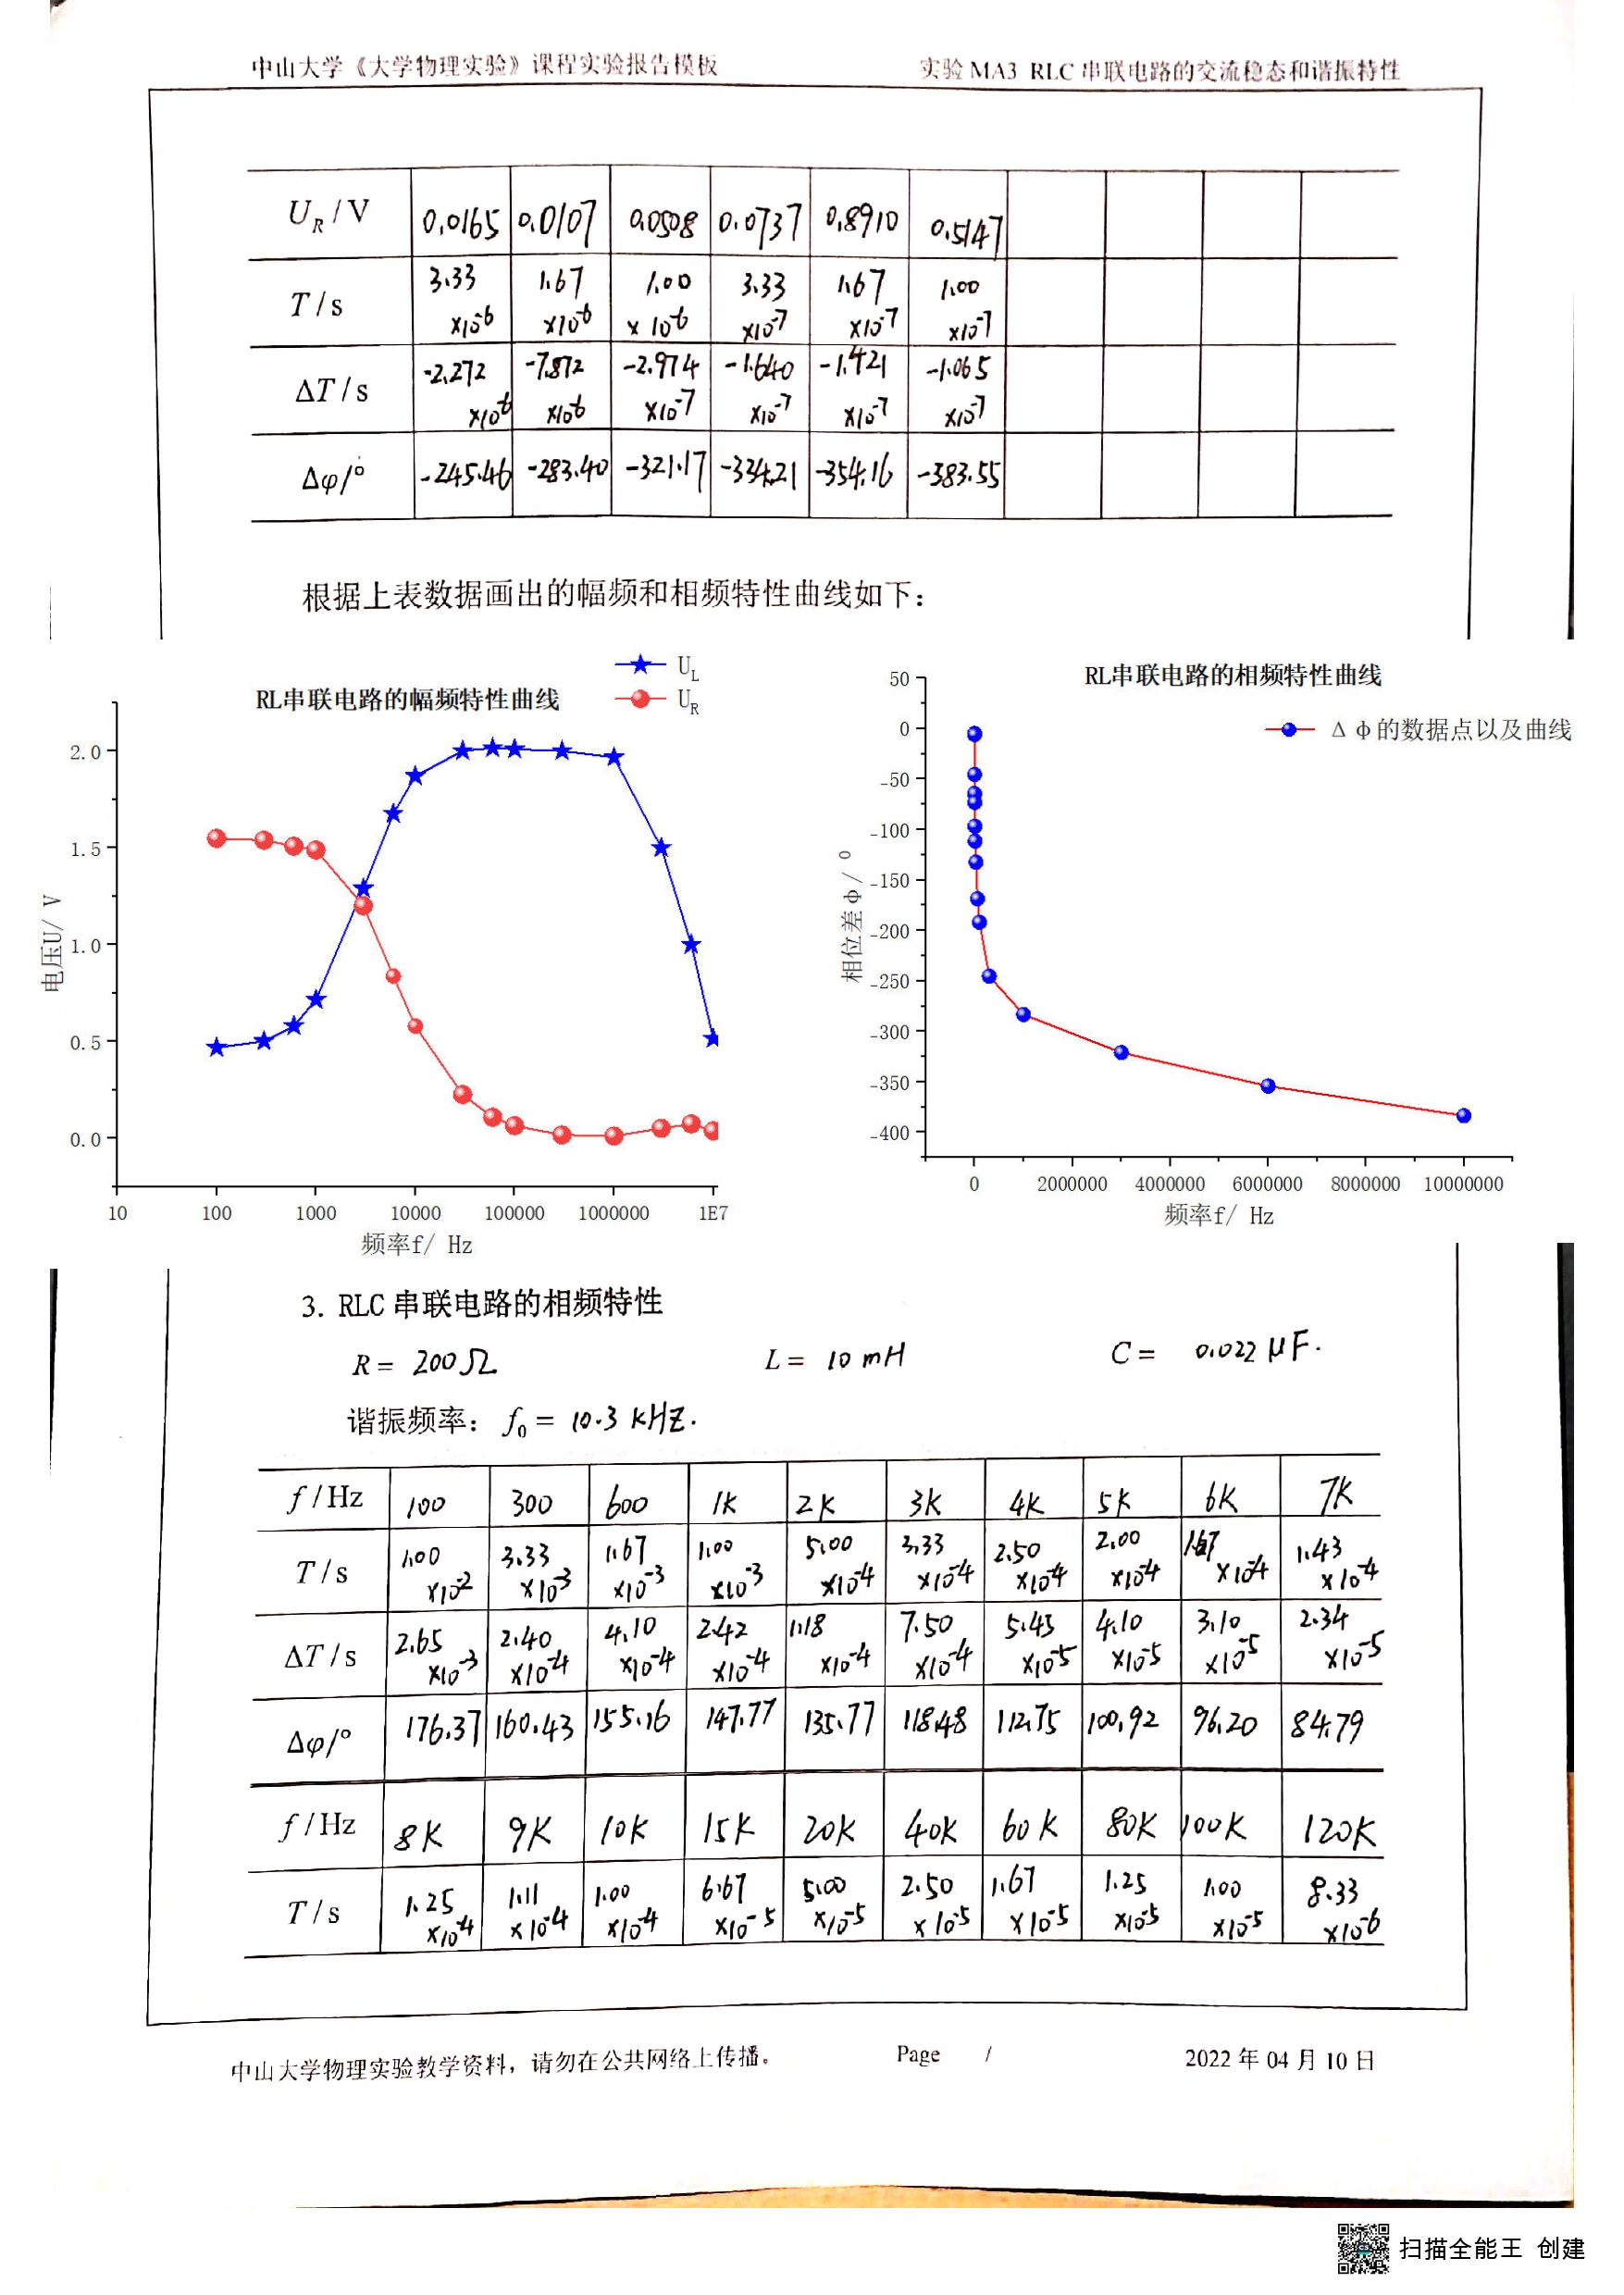 中山大学《大学物理实验》课程实验报告模板 实验 MA3 RLC 串联电路的交流稳态和谐振特性
U_R / V 0.0165 0.0107 0.0508 0.0737 0.8910 0.5147
T / s 3.33 ×10^-6 1.67 ×10^-6 1.00 ×10^-6 3.33 ×10^-7 1.67 ×10^-7 1.00 ×10^-7
ΔT / s -2.272 ×10^-6 -7.872 ×10^-6 -2.974 ×10^-7 -1.640 ×10^-7 -1.421 ×10^-7 -1.065 ×10^-7
Δφ/° -245.46 -283.40 -321.17 -334.21 -354.16 -383.55
根据上表数据画出的幅频和相频特性曲线如下：
RL串联电路的幅频特性曲线
U_L
U_R
2.0
1.5
1.0
0.5
0.0
电压U/ V
10 100 1000 10000 100000 1000000 1E7
频率f/ Hz
RL串联电路的相频特性曲线
Δ φ的数据点以及曲线
50
0
-50
-100
-150
-200
-250
-300
-350
-400
相位差φ/ °
0 2000000 4000000 6000000 8000000 10000000
频率f/ Hz
3. RLC 串联电路的相频特性
R = 200Ω L = 10 mH C = 0.022 μF.
谐振频率： f_0 = 10.3 kHZ.
f / Hz 100 300 600 1k 2k 3k 4k 5k 6k 7k
T / s 1.00 ×10^-2 3.33 ×10^-3 1.67 ×10^-3 1.00 ×10^-3 5.00 ×10^-4 3.33 ×10^-4 2.50 ×10^-4 2.00 ×10^-4 1.67 ×10^-4 1.43 ×10^-4
ΔT / s 2.65 ×10^-3 2.40 ×10^-4 4.10 ×10^-4 2.42 ×10^-4 1.18 ×10^-4 7.50 ×10^-4 5.45 ×10^-5 4.10 ×10^-5 3.10 ×10^-5 2.34 ×10^-5
Δφ/° 176.37 160.43 155.16 147.77 135.77 118.48 112.75 100.92 96.20 84.79
f / Hz 8K 9K 10K 15K 20K 40K 60K 80K 100K 120K
T / s 1.25 ×10^-4 1.11 ×10^-4 1.00 ×10^-4 6.67 ×10^-5 5.00 ×10^-5 2.50 ×10^-5 1.67 ×10^-5 1.25 ×10^-5 1.00 ×10^-5 8.33 ×10^-6
中山大学物理实验教学资料，请勿在公共网络上传播。 Page / 2022 年 04 月 10 日
扫描全能王 创建